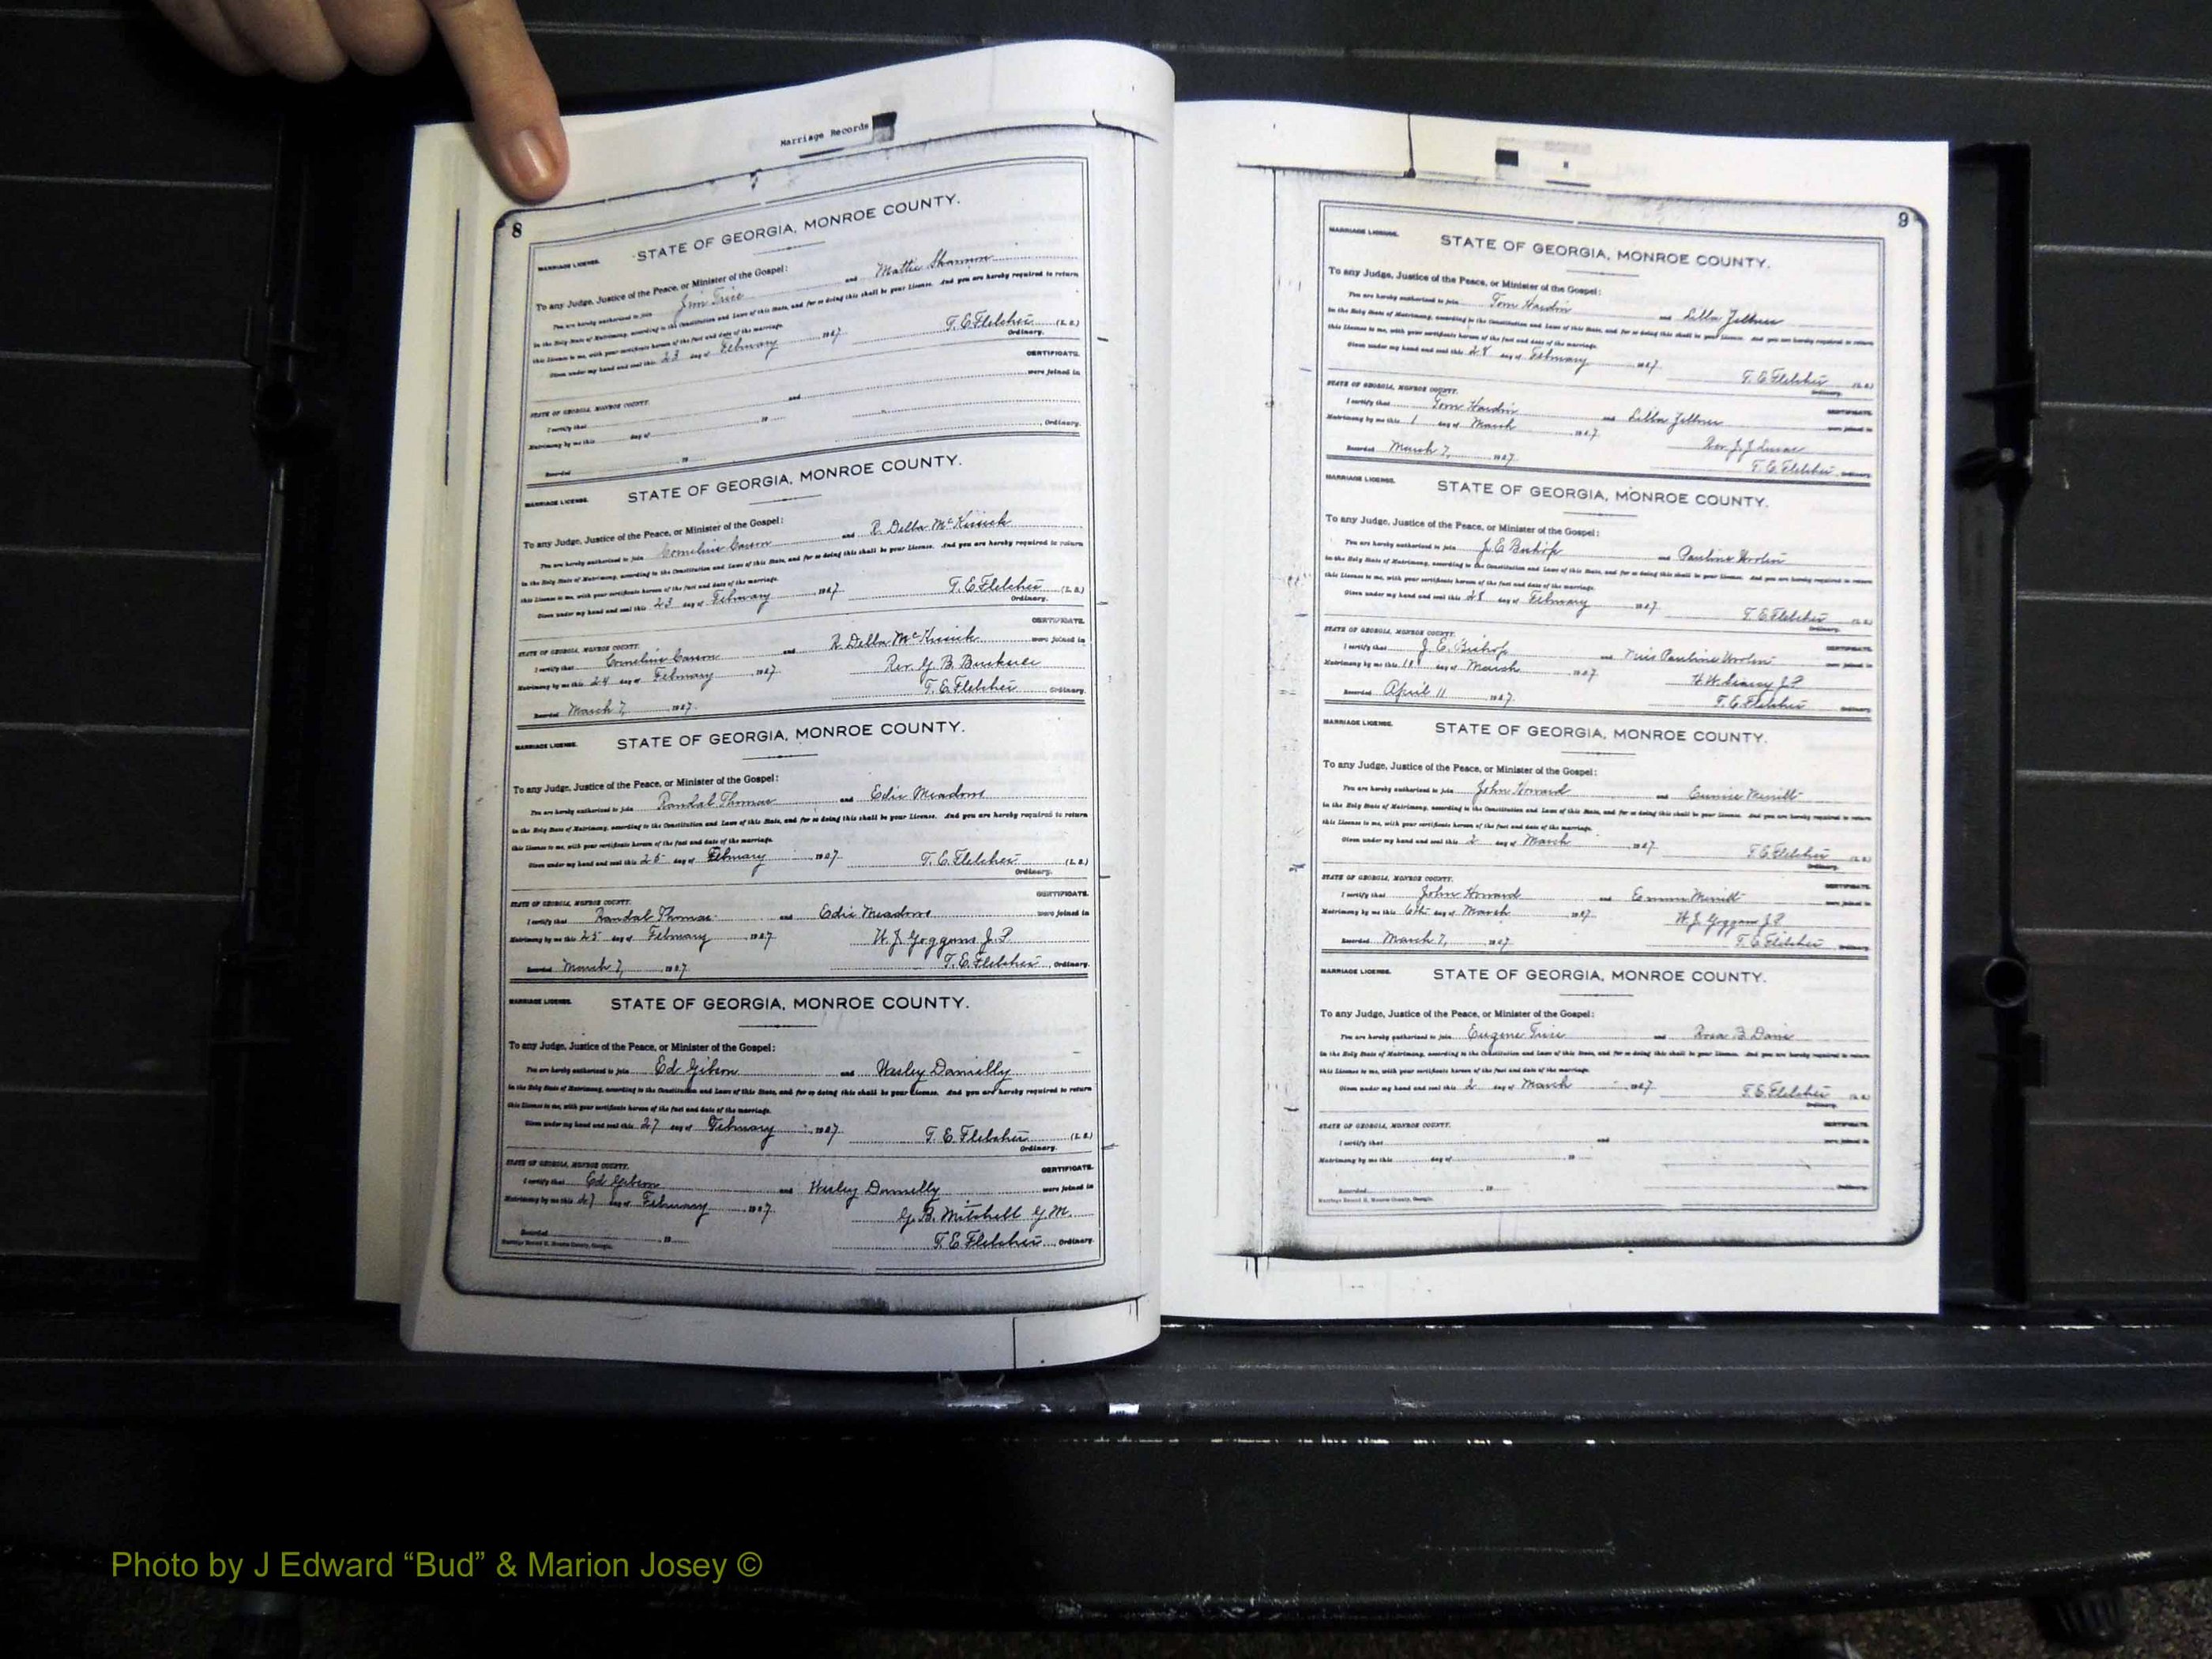 Marriage Records
8
MARRIAGE LICENSE.
STATE OF GEORGIA, MONROE COUNTY.
To any Judge, Justice of the Peace, or Minister of the Gospel:
You are hereby authorized to join Jim Trice and Mattie Shannon
in the Holy State of Matrimony, according to the Constitution and Laws of this State, and for so doing this shall be your License. And you are hereby required to return
this License to me, with your certificate hereon of the fact and date of the marriage.
Given under my hand and seal this 23 day of February 1927. T. E. Fletcher (L. S.)
Ordinary.
CERTIFICATE.
STATE OF GEORGIA, MONROE COUNTY.
I certify that and were joined in
Matrimony by me this day of 19
Recorded 19 Ordinary.
MARRIAGE LICENSE.
STATE OF GEORGIA, MONROE COUNTY.
To any Judge, Justice of the Peace, or Minister of the Gospel:
You are hereby authorized to join Cornelius Carson and R. Della McKissick
in the Holy State of Matrimony, according to the Constitution and Laws of this State, and for so doing this shall be your License. And you are hereby required to return
this License to me, with your certificate hereon of the fact and date of the marriage.
Given under my hand and seal this 23 day of February 1927. T. E. Fletcher (L. S.)
Ordinary.
CERTIFICATE.
STATE OF GEORGIA, MONROE COUNTY.
I certify that Cornelius Carson and R. Della McKissick were joined in
Matrimony by me this 24 day of February 1927. Rev. G. B.
Recorded March 7, 1927. T. E. Fletcher Ordinary.
MARRIAGE LICENSE.
STATE OF GEORGIA, MONROE COUNTY.
To any Judge, Justice of the Peace, or Minister of the Gospel:
You are hereby authorized to join Randal Thomas and Edie Meadows
in the Holy State of Matrimony, according to the Constitution and Laws of this State, and for so doing this shall be your License. And you are hereby required to return
this License to me, with your certificate hereon of the fact and date of the marriage.
Given under my hand and seal this 25 day of February 1927. T. E. Fletcher (L. S.)
Ordinary.
CERTIFICATE.
STATE OF GEORGIA, MONROE COUNTY.
I certify that Randal Thomas and Edie Meadows were joined in
Matrimony by me this 25 day of February 1927 W. J. Goggans J. P.
Recorded March 7, 1927 T. E. Fletcher, Ordinary.
MARRIAGE LICENSE.
STATE OF GEORGIA, MONROE COUNTY.
To any Judge, Justice of the Peace, or Minister of the Gospel:
You are hereby authorized to join Ed Gibson and Wesley Danielly
in the Holy State of Matrimony, according to the Constitution and Laws of this State, and for so doing this shall be your License. And you are hereby required to return
this License to me, with your certificate hereon of the fact and date of the marriage.
Given under my hand and seal this 27 day of February 1927. T. E. Fletcher (L. S.)
Ordinary.
CERTIFICATE.
STATE OF GEORGIA, MONROE COUNTY.
I certify that Ed Gibson and Wesley Danielly were joined in
Matrimony by me this 27 day of February 1927. G. B. Mitchell G. M.
Recorded 19 T. E. Fletcher, Ordinary.
Marriage Record, Monroe County, Georgia.
9
MARRIAGE LICENSE.
STATE OF GEORGIA, MONROE COUNTY.
To any Judge, Justice of the Peace, or Minister of the Gospel:
You are hereby authorized to join Tom Hardin and Lilla Zellner
in the Holy State of Matrimony, according to the Constitution and Laws of this State, and for so doing this shall be your License. And you are hereby required to return
this License to me, with your certificate hereon of the fact and date of the marriage.
Given under my hand and seal this 28 day of February 1927. T. E. Fletcher (L. S.)
Ordinary.
CERTIFICATE.
STATE OF GEORGIA, MONROE COUNTY.
I certify that Tom Hardin and Lilla Zellner were joined in
Matrimony by me this 1 day of March 1927. Rev. J. J.
Recorded March 7, 1927. T. E. Fletcher Ordinary.
MARRIAGE LICENSE.
STATE OF GEORGIA, MONROE COUNTY.
To any Judge, Justice of the Peace, or Minister of the Gospel:
You are hereby authorized to join J. E. Bishop and Pauline
in the Holy State of Matrimony, according to the Constitution and Laws of this State, and for so doing this shall be your License. And you are hereby required to return
this License to me, with your certificate hereon of the fact and date of the marriage.
Given under my hand and seal this 28 day of February 1927. T. E. Fletcher (L. S.)
Ordinary.
CERTIFICATE.
STATE OF GEORGIA, MONROE COUNTY.
I certify that J. E. Bishop and Miss Pauline were joined in
Matrimony by me this day of March 1927. J. P.
Recorded April 11 1927. T. E. Fletcher Ordinary.
MARRIAGE LICENSE.
STATE OF GEORGIA, MONROE COUNTY.
To any Judge, Justice of the Peace, or Minister of the Gospel:
You are hereby authorized to join John Howard and Eunice Merritt
in the Holy State of Matrimony, according to the Constitution and Laws of this State, and for so doing this shall be your License. And you are hereby required to return
this License to me, with your certificate hereon of the fact and date of the marriage.
Given under my hand and seal this 2 day of March 1927. T. E. Fletcher (L. S.)
Ordinary.
CERTIFICATE.
STATE OF GEORGIA, MONROE COUNTY.
I certify that John Howard and Merritt were joined in
Matrimony by me this 6th day of March 1927. W. J. Goggans J. P.
Recorded March 7, 1927. T. E. Fletcher Ordinary.
MARRIAGE LICENSE.
STATE OF GEORGIA, MONROE COUNTY.
To any Judge, Justice of the Peace, or Minister of the Gospel:
You are hereby authorized to join Eugene Trice and Rosa B. Davis
in the Holy State of Matrimony, according to the Constitution and Laws of this State, and for so doing this shall be your License. And you are hereby required to return
this License to me, with your certificate hereon of the fact and date of the marriage.
Given under my hand and seal this 2 day of March 1927 T. E. Fletcher (L. S.)
Ordinary.
CERTIFICATE.
STATE OF GEORGIA, MONROE COUNTY.
I certify that and were joined in
Matrimony by me this day of 19
Recorded 19 Ordinary.
Marriage Record, Monroe County, Georgia.
Photo by J Edward “Bud” & Marion Josey ©